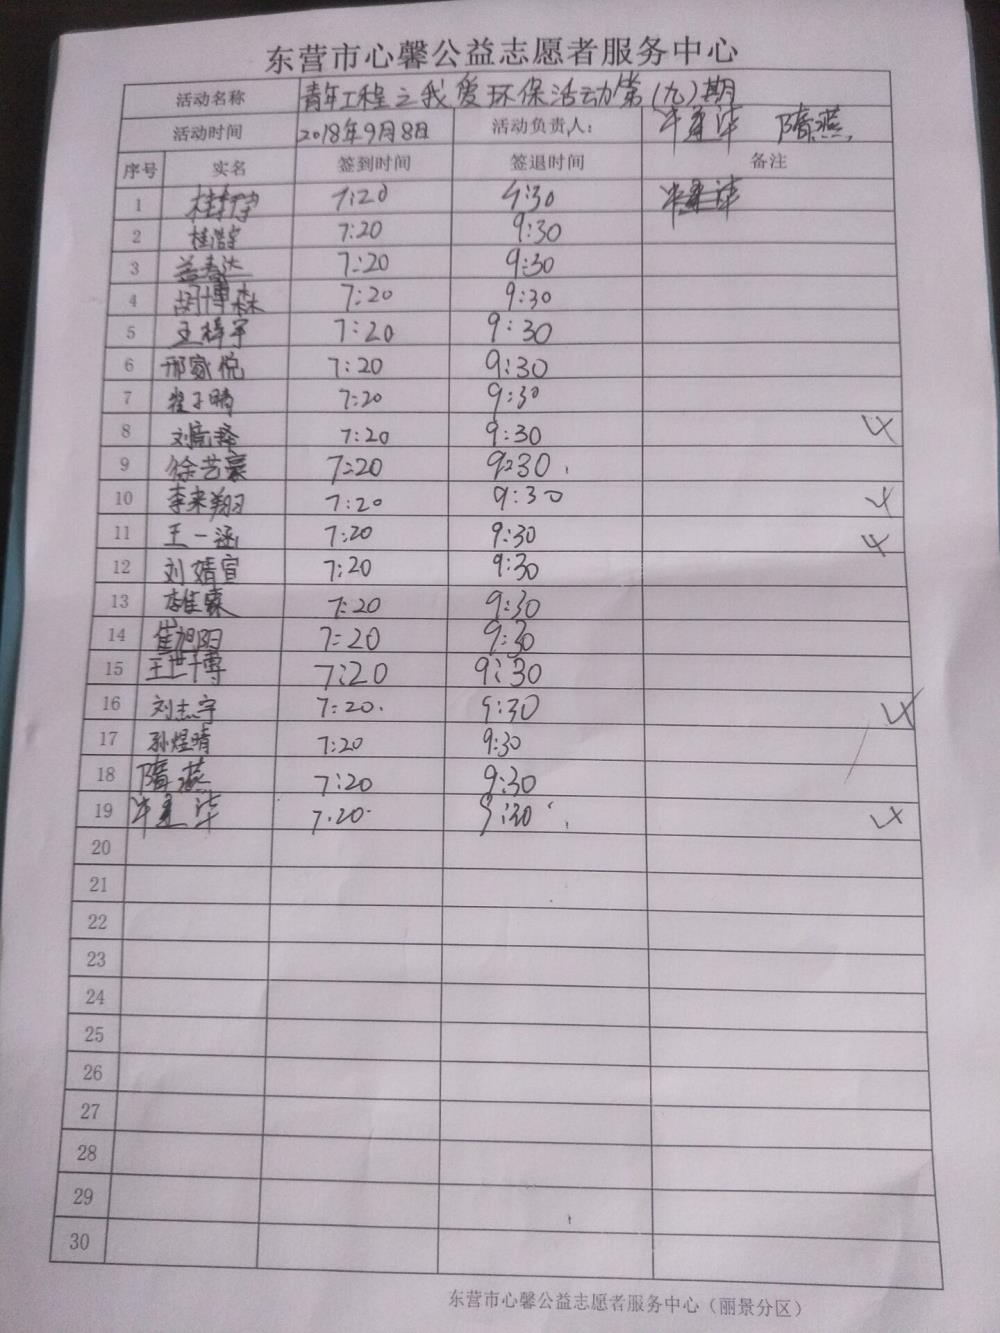 东营市心馨公益志愿者服务中心
活动名称 青年工程之我爱环保活动第(九)期
活动时间 2018年9月8日 活动负责人: 隋燕
序号 实名 签到时间 签退时间 备注
1 7:20 9:30
2 桂浩宇 7:20 9:30
3 7:20 9:30
4 胡博森 7:20 9:30
5 王梓宇 7:20 9:30
6 邢家悦 7:20 9:30
7 崔子晴 7:20 9:30
8 7:20 9:30
9 徐艺豪 7:20 9:30
10 李来翔 7:20 9:30
11 王一涵 7:20 9:30
12 刘婧宣 7:20 9:30
13 李佳霖 7:20 9:30
14 崔旭阳 7:20 9:30
15 王世博 7:20 9:30
16 刘志宇 7:20 9:30
17 孙煜晴 7:20 9:30
18 隋燕 7:20 9:30
19 7:20 9:30
20
21
22
23
24
25
26
27
28
29
30
东营市心馨公益志愿者服务中心（丽景分区）